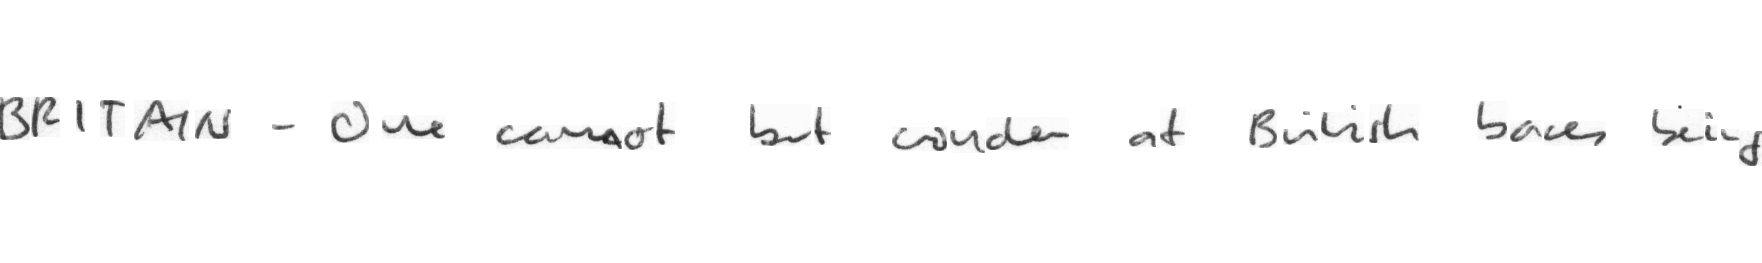 BRITAIN - One cannot but wonder at British bases being